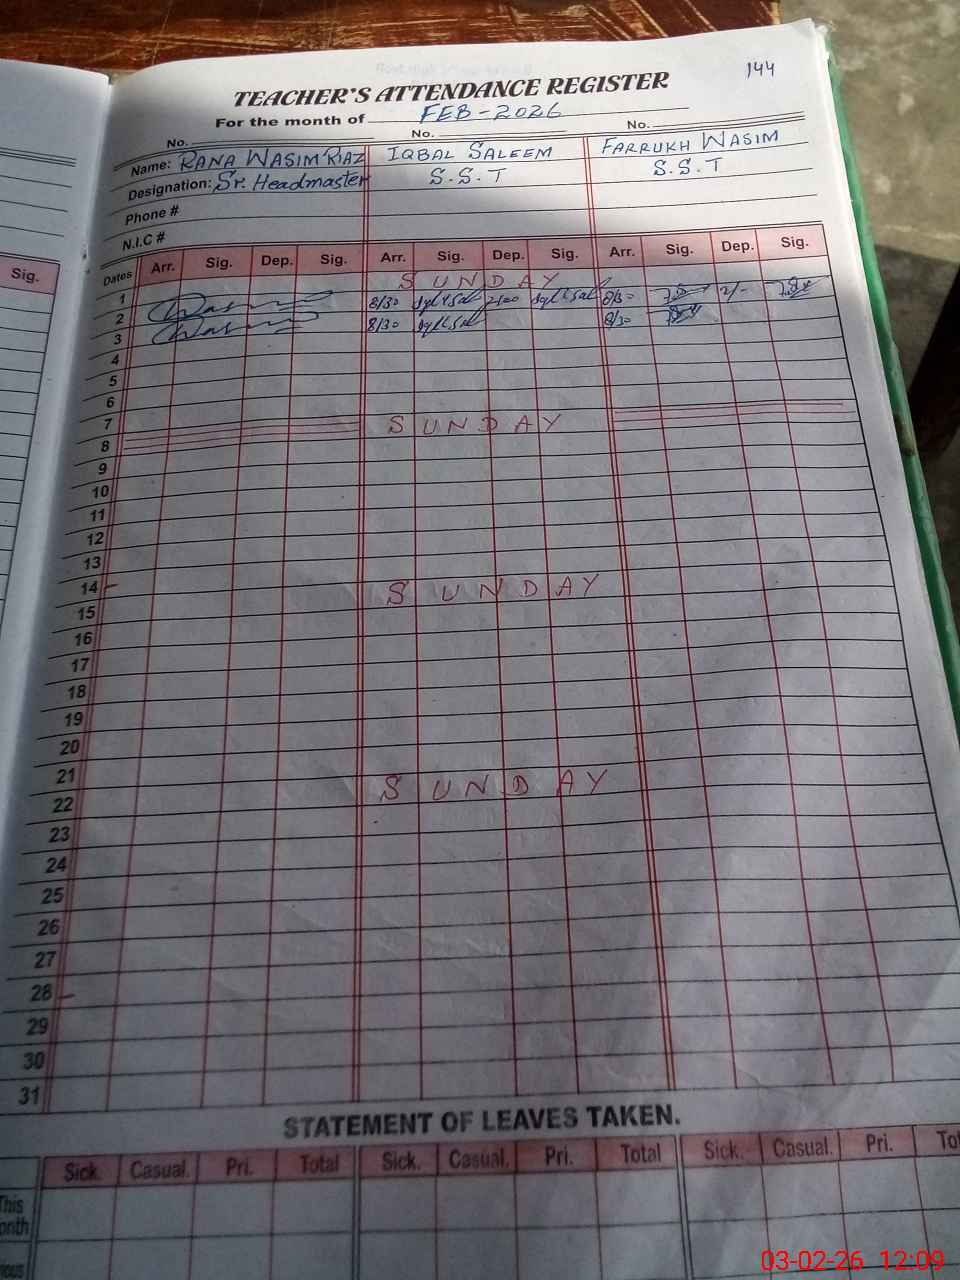 144
TEACHER'S ATTENDANCE REGISTER
For the month of FEB-2026
No. No. No.
Name: RANA WASIM RIAZ IQBAL SALEEM FARRUKH WASIM
Designation: Sr. Headmaster S.S.T S.S.T
Phone #
N.I.C #
Sig.
Dates Arr. Sig. Dep. Sig. Arr. Sig. Dep. Sig. Arr. Sig. Dep. Sig.
1 SUNDAY
2 8/30 8/30 2/-
3 8/30 8/30
4
5
6
7
8 SUNDAY
9
10
11
12
13
14
15 SUNDAY
16
17
18
19
20
21
22 SUNDAY
23
24
25
26
27
28
29
30
31
STATEMENT OF LEAVES TAKEN.
Sick. Casual. Pri. Total Sick. Casual. Pri. Total Sick. Casual. Pri.
This
03-02-26 12:09